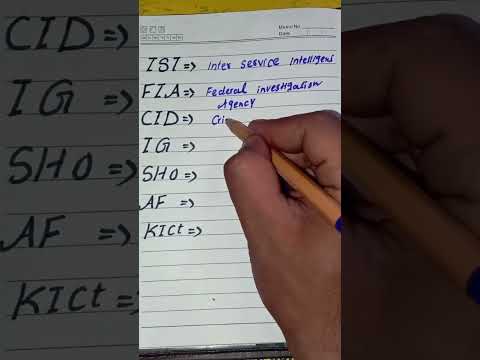 Memo No.
Date
ISI => Inter service intelligens
FIA => Federal investigation
Agency
CID => Cri
IG =>
SHO =>
AF =>
KICt =>
CID =>
IG =>
SHO
AF =>
KICt =>